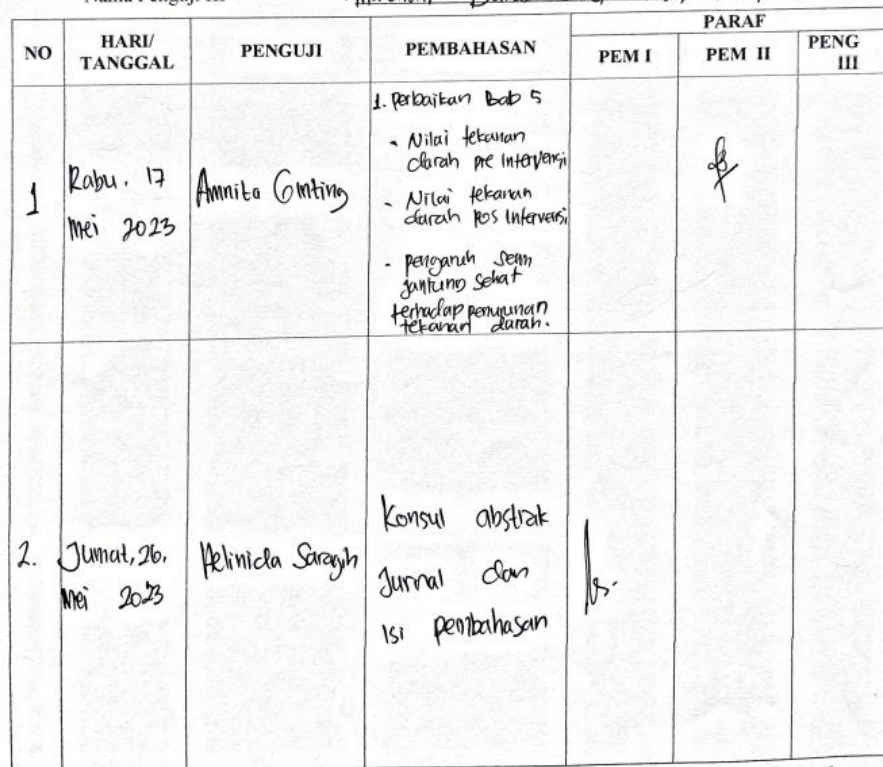 PARAF
NO
HARI/
TANGGAL
PENGUJI
PEMBAHASAN
PEM I
PEM II
PENG
III
1
Rabu. 17
Mei 2023
Amnita Ginting
1. Perbaikan Bab 5
- Nilai tekanan
darah pre Intervensi
- Nilai tekanan
darah pos Intervensi
- pengaruh senm
jantung sehat
terhadap penurunan
tekanan darah.
2.
Jumat, 26.
Mei 2023
Helinida Saragih
Konsul abstrak
Jurnal dan
Isi pembahasan